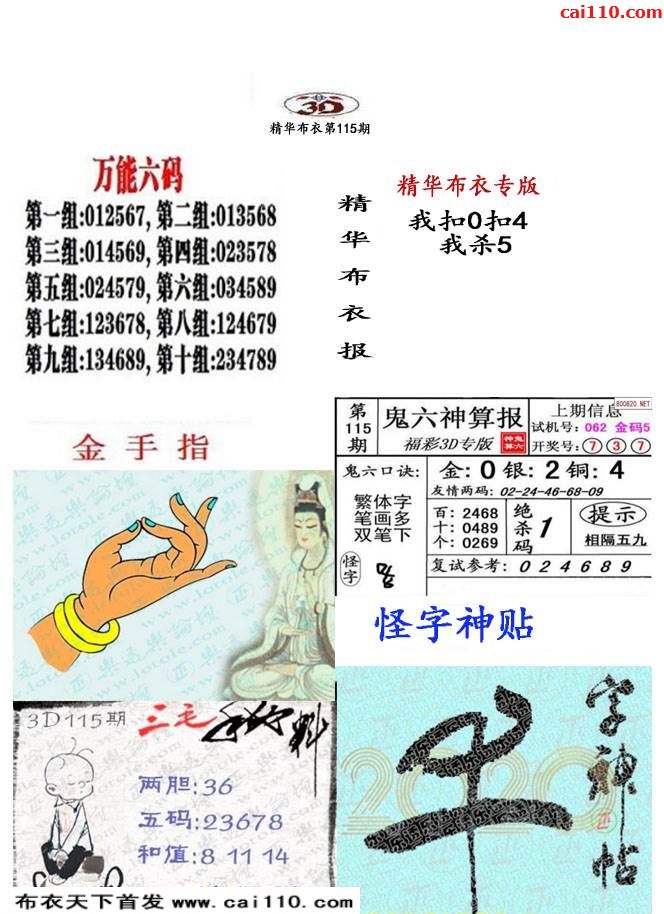 cai110.com
3D
精华布衣第115期
万能六码
第一组:012567, 第二组:013568
第三组:014569, 第四组:023578
第五组:024579, 第六组:034589
第七组:123678, 第八组:124679
第九组:134689, 第十组:234789
精华布衣报
精华布衣专版
我扣0扣4
我杀5
金手指
第115期
鬼六神算报
福彩3D专版
上期信息
800820.NET
试机号: 062 金码5
开奖号: 7 3 7
鬼六口诀:
繁体字
笔画多
双笔下
金: 0 银: 2 铜: 4
友情两码: 02-24-46-68-09
百: 2468
十: 0489
个: 0269
绝杀码 1
提示
相隔五九
怪字
复试参考: 0 2 4 6 8 9
怪字神贴
3D115期
三毛
两胆:36
五码:23678
和值:8 11 14
2020
字神帖
布衣天下首发 www.cai110.com